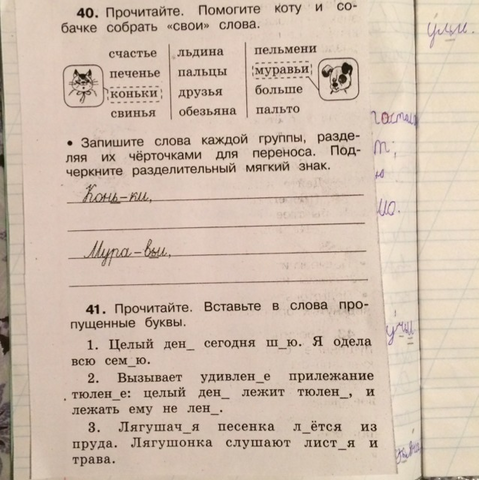 40. Прочитайте. Помогите коту и со-
бачке собрать «свои» слова.
счастье льдина пельмени
печенье пальцы муравьи
коньки друзья больше
свинья обезьяна пальто
• Запишите слова каждой группы, разде-
ляя их чёрточками для переноса. Под-
черкните разделительный мягкий знак.
Конь-ки,
Мура-вьи,
41. Прочитайте. Вставьте в слова про-
пущенные буквы.
1. Целый ден_ сегодня ш_ю. Я одела
всю сем_ю.
2. Вызывает удивлен_е прилежание
тюлен_е: целый ден_ лежит тюлен_, и
лежать ему не лен_.
3. Лягушач_я песенка л_ётся из
пруда. Лягушонка слушают лист_я и
трава.